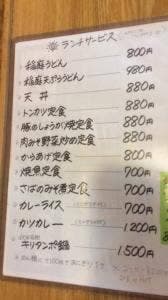 ランチサービス
稲庭うどん 800円
稲庭天ぷらうどん 980円
天丼 880円
トンカツ定食 880円
豚のしょうが焼定食 880円
肉みそ野菜炒め定食 880円
からあげ定食 800円
焼魚定食 700円
さばのみそ煮定食 700円
カレーライス 700円
カツカレー 1200円
キリタンポ鍋 1500円